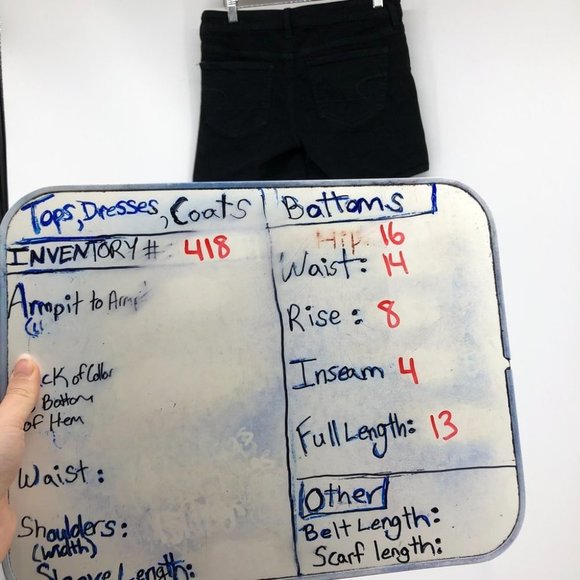 Tops, Dresses, Coats
INVENTORY #: 418
Armpit to Arm
ck of Collar
Bottom
of Hem
Waist:
Shoulders:
(width)
Sleeve Length:
Bottoms
Hip: 16
Waist: 14
Rise: 8
Inseam 4
Full Length: 13
Other
Belt Length:
Scarf length: